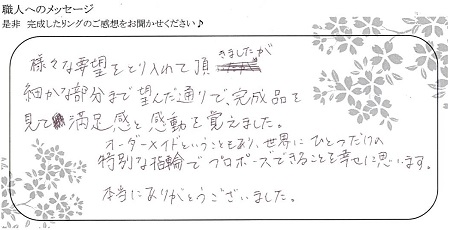 職人へのメッセージ
是非 完成したリングのご感想をお聞かせください♪
様々な要望をとり入れて頂きましたが
細かな部分まで望んだ通りで、完成品を
見て満足感と感動を覚えました。
オーダーメイドということもあり、世界にひとつだけの
特別な指輪でプロポーズできることを幸せに思います。
本当にありがとうございました。